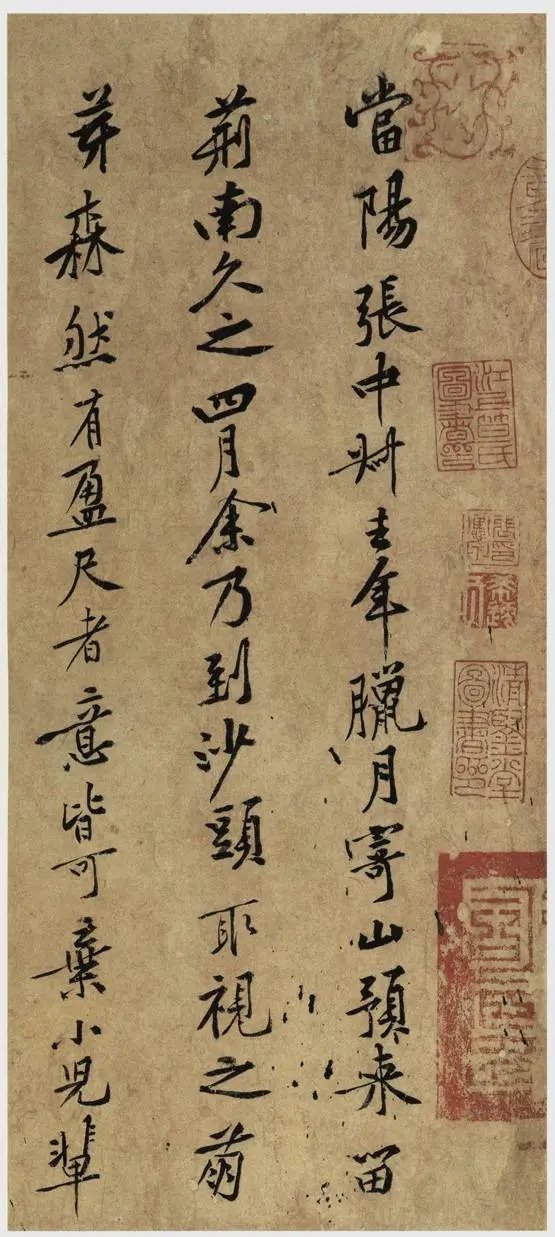 當陽張中叔去年臘月寄山預來留
荊南久之四月余乃到沙頭取視之萌
芽森然有盈尺者意皆可棄小兒輩
江上笪氏圖書印